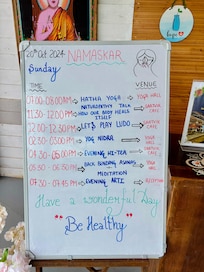 20th Oct 2024 NAMASKAR
Sunday
TIME VENUE
07:00-08:00AM → HATHA YOGA → YOGA HALL
11:30-12:00PM → NATUROPATHY TALK HOW OUR BODY HEALS ITSELF → SATVIK CAFE
12:00-12:30PM → LET'S PLAY LUDO → SATVIK CAFE
02:30-03:30PM → YOG NIDRA → YOGA HALL
04:30-05:00PM → EVENING HI-TEA → SATVIK CAFE
05:30-06:30PM → BACK BENDING ASANAS MEDITATION → YOGA HALL
07:30-07:45PM → EVENING ARTI → RECEPTION
Have a wonderful day
"Be Healthy"